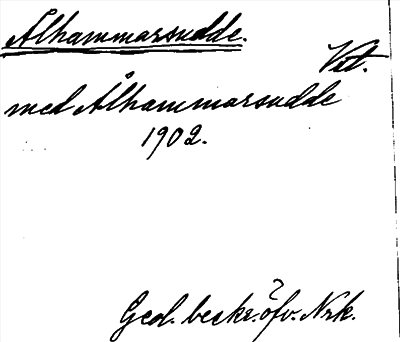 Ålhammarsudde.
Vst.
med Ålhammarsudde
1902.
Geol. beskr. öfv. Nrk.